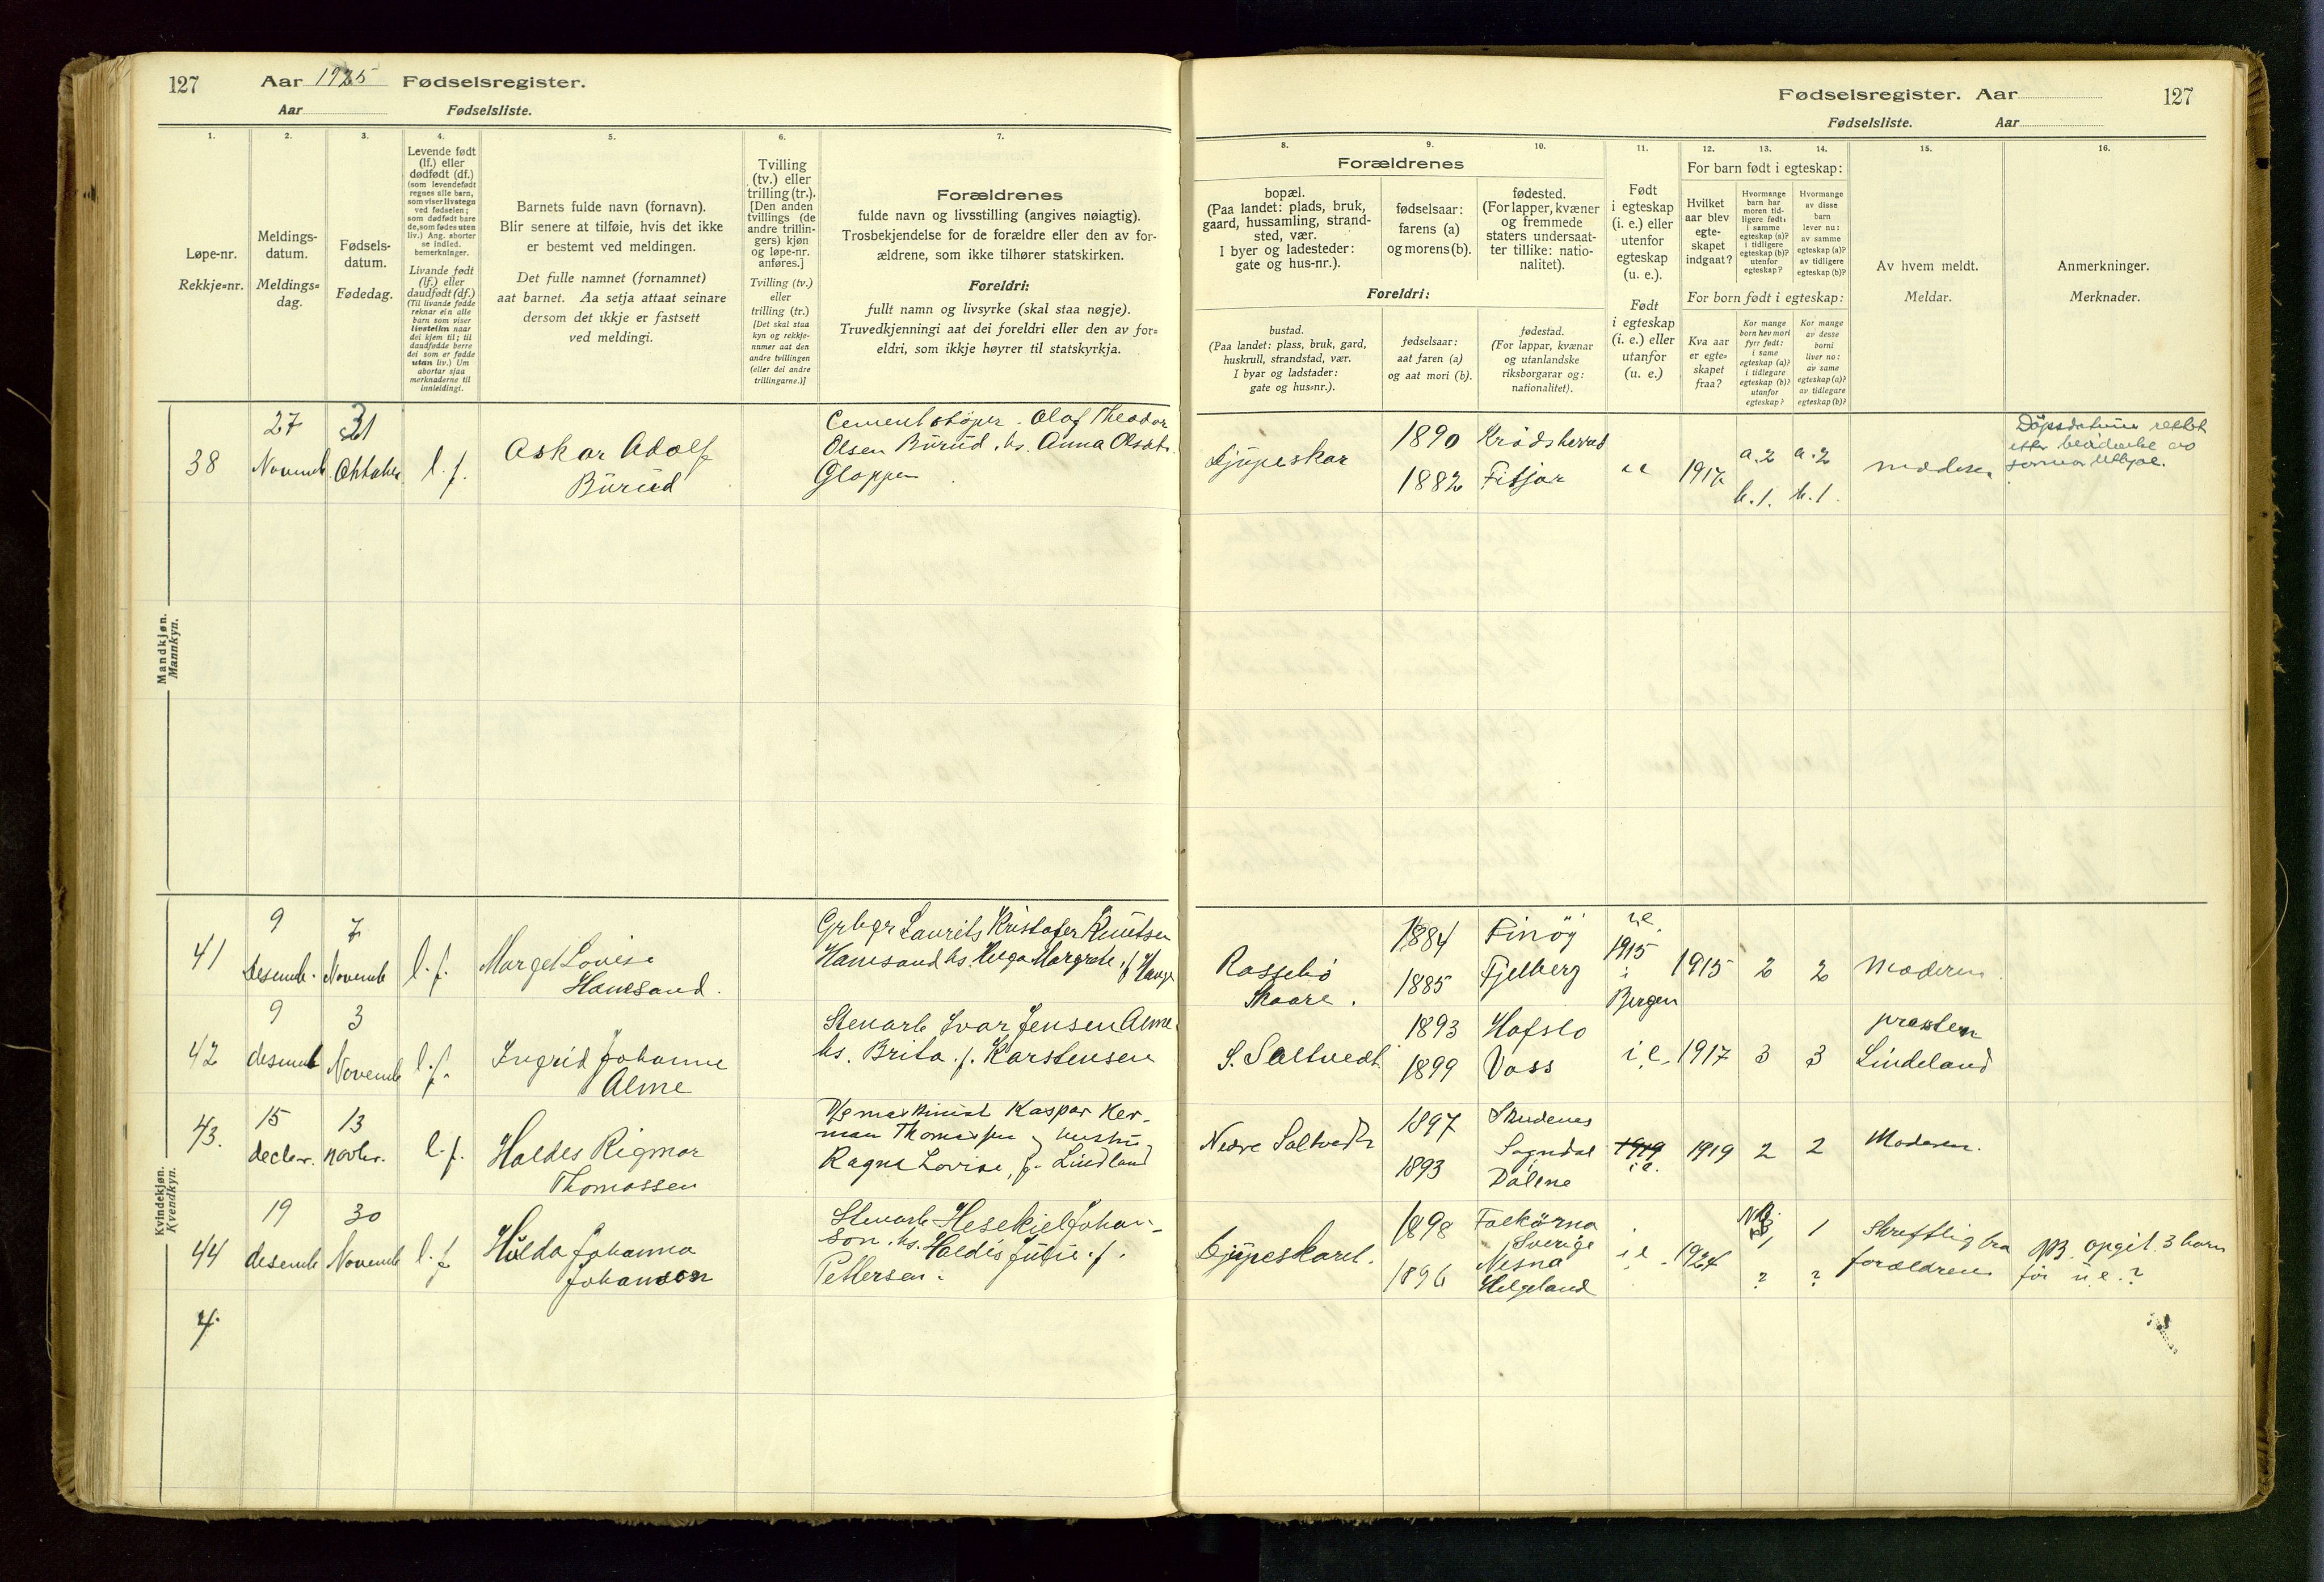 127 Aar 1925 Fødselsregister.
Aar Fødselsliste.
1. 2. 3. 4. 5. 6. 7.
Løpe-nr.
Rekkje=nr.
Meldings-
datum.
Meldings=
dag.
Fødsels-
datum.
Fødedag.
Levende født
(lf.) eller
dødfødt (df.)
(som levendefødt
regnes alle barn,
som viser livstegn
ved fødselen;
som dødfødt bare
de, som fødes uten
liv.) Ang. aborter
se indled.
bemerkninger.
Livande født
(lf.) eller
daudfødt (df.)
(Til livande fødde
reknar ein alle
barn som viser
livsteikn naar
dei kjem til; til
daudfødde berre
dei som er fødde
utan liv.) Um
abortar sjaa
merknaderne til
innleidingi.
Barnets fulde navn (fornavn).
Blir senere at tilføie, hvis det ikke
er bestemt ved meldingen.
Det fulle namnet (fornamnet)
aat barnet. Aa setja attaat seinare
dersom det ikkje er fastsett
ved meldingi.
Tvilling
(tv.) eller
trilling (tr.).
[Den anden
tvillings (de
andre trillin-
gers) kjøn
og løpe-nr.
anføres.]
Tvilling (tv.)
eller
trilling (tr.)
[Det skal staa
kyn og rekkje-
nummer aat den
andre tvillingen
(eller dei andre
trillingarne.)]
Forældrenes
fulde navn og livsstilling (angives nøiagtig).
Trosbekjendelse for de forældre eller den av for-
ældrene, som ikke tilhører statskirken.
Foreldri:
fullt namn og livsyrke (skal staa nøgje).
Truvedkjenningi aat dei foreldri eller den av for=
eldri, som ikkje høyrer til statskyrkja.
Mandkjøn.
Mannkyn.
38
27
Novemb
31
Oktober
l. f.
Askar Adolf
Burud
Cementstøper. Olaf Theodor
Olsen Burud. hs. Anna Olsdtr.
Gloppen
Kvindekjøn.
Kvendkyn.
41
9
Desemb.
7
Novemb
l. f.
Marget Lovise
Hanesand.
Grbgr Laurits Kristofer Knutsen
Hanesand hs. Helga Margrete, f. Hauge
42
9
desemb
3
Novemb
l. f.
Ingrid Johanne
Alme
Stuart Ivar Jensen Alme
hs. Brita. f. Karstensen
43.
15
decbr.
13
novbr.
l. f.
Haldes Rigmor
Thomassen
Kaspar Her-
man Thomassen og hustru
Ragna Lovise, f. Lindland
44
19
desemb
30
Novemb
l. f.
Hulda Johanna
Johanson
Stuart Hesekiel Johan-
son. hs. Haldis Julie. f.
Pettersen.
4.
Fødselsregister. Aar 127
Fødselsliste. Aar
8. 9. 10. 11. 12. 13. 14. 15. 16.
Forældrenes
bopæl.
(Paa landet: plads, bruk,
gaard, hussamling, strand-
sted, vær.
I byer og ladesteder:
gate og hus-nr.).
fødselsaar:
farens (a)
og morens (b).
fødested.
(For lapper, kvæner
og fremmede
staters undersaat-
ter tillike: natio-
nalitet).
Foreldri:
bustad.
(Paa landet: plass, bruk, gard,
huskrull, strandstad, vær.
I byar og ladstader:
gate og hus=nr.).
fødselsaar:
aat faren (a)
og aat mori (b).
fødestad.
(For lappar, kvænar
og utanlandske
riksborgarar og:
nationalitet).
Født
i egteskap
(i. e.) eller
utenfor
egteskap
(u. e.).
Født
i egteskap
(i. e.) eller
utanfor
(u. e.)
For barn født i egteskap:
Hvilket
aar blev
egte-
skapet
indgaat?
Hvormange
barn har
moren tid-
ligere født:
i samme
egteskap (a)?
i tidligere
egteskap (b)?
utenfor
egteskap?
Hvormange
av disse
barn
lever nu:
av samme
egteskap (a)?
av tidligere
egteskap (b)?
For born født i egteskap:
Kva aar
er egte=
skapet
fraa?
Kor mange
born hev mori
fyrr født:
i same
egteskap (a)?
i tidlegare
egteskap (b)?
utanfor
egteskap?
Kor mange
av desse
borni
liver no:
av same
egteskap (a)?
av tidlegare
egteskap (b)?
Av hvem meldt.
Meldar.
Anmerkninger.
Merknader.
Djupeskar
1890
1882
Krødsherred
Fitjar
ie
1917
a. 2 a. 2
b. 1. b. 1.
moderen
Dåpsdatum rettet
etter av
Rossebø
Skaare.
1884
1885
Finøy
Fjelberg
i.e.
1915
i
Bergen
1915
2 2
Moderen
S. Saltvedt.
1893
1899
Hafslo
Voss
i e. 1917 3 3
presten
Lindeland
Nedre Saltvedt
1897
1893
Skudenes
Sogndal
Dalene
1919
i e.
1919 2 2
Moderen.
Djupeskaret.
1898
1896
Falkörna
Sverige
Nesna
Helgeland
i e. 1924
1
? ?
Skriftlig fra
forældrene
NB. opgit 3 barn
før u. e. ?